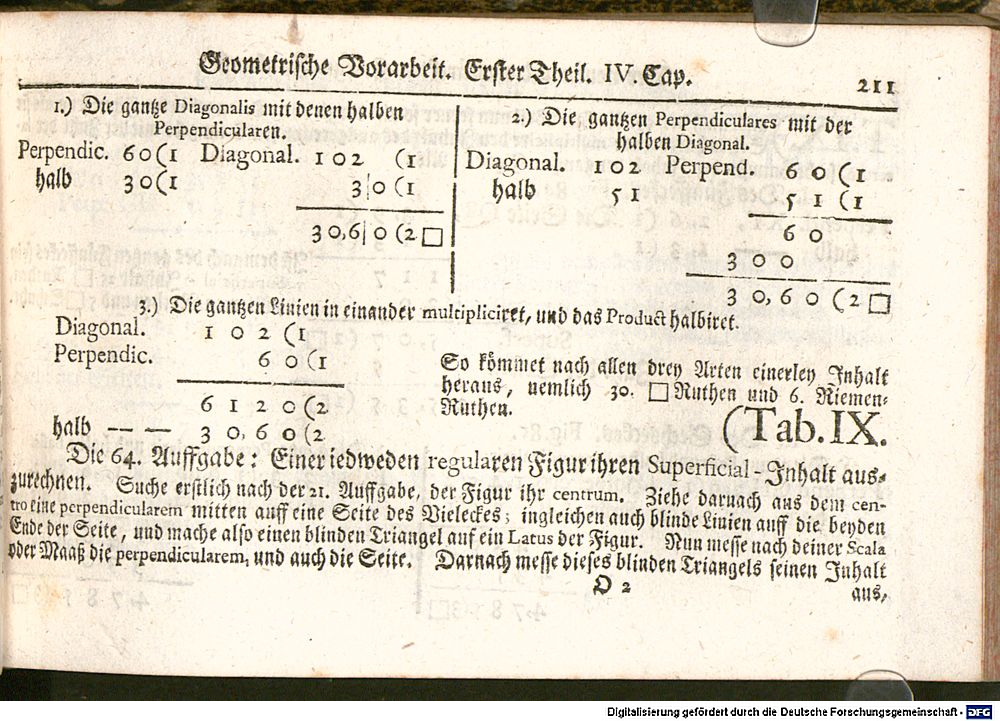 Geometrische Vorarbeit. Erster Theil. IV. Cap.
211
1.) Die gantze Diagonalis mit denen halben
Perpendicularen.
Perpendic. 60(1 Diagonal. 102 (1
halb 30(1 3|0(1
30,6|0(2□
2.) Die gantzen Perpendiculares mit der
halben Diagonal.
Diagonal. 102 Perpend. 60(1
halb 51 51(1
60
300
30,60(2□
3.) Die gantzen Linien in einander multipliciret, und das Product halbiret.
Diagonal. 102(1
Perpendic. 60(1
6120(2
halb — — 30,60(2
So kömmet nach allen drey Arten einerley Inhalt
heraus, nemlich 30. □Ruthen und 6. Riemen-
Ruthen.
(Tab. IX.
Die 64. Auffgabe: Einer iedweden regularen Figur ihren Superficial-Inhalt aus-
zurechnen. Suche erstlich nach der 21. Auffgabe, der Figur ihr centrum. Ziehe darnach aus dem cen-
tro eine perpendicularem mitten auff eine Seite des Vieleckes; ingleichen auch blinde Linien auff die beyden
Ende der Seite, und mache also einen blinden Triangel auf ein Latus der Figur. Nun messe nach deiner Scala
oder Maaß die perpendicularem, und auch die Seite. Darnach messe dieses blinden Triangels seinen Inhalt
O 2
aus,
Digitalisierung gefördert durch die Deutsche Forschungsgemeinschaft - DFG